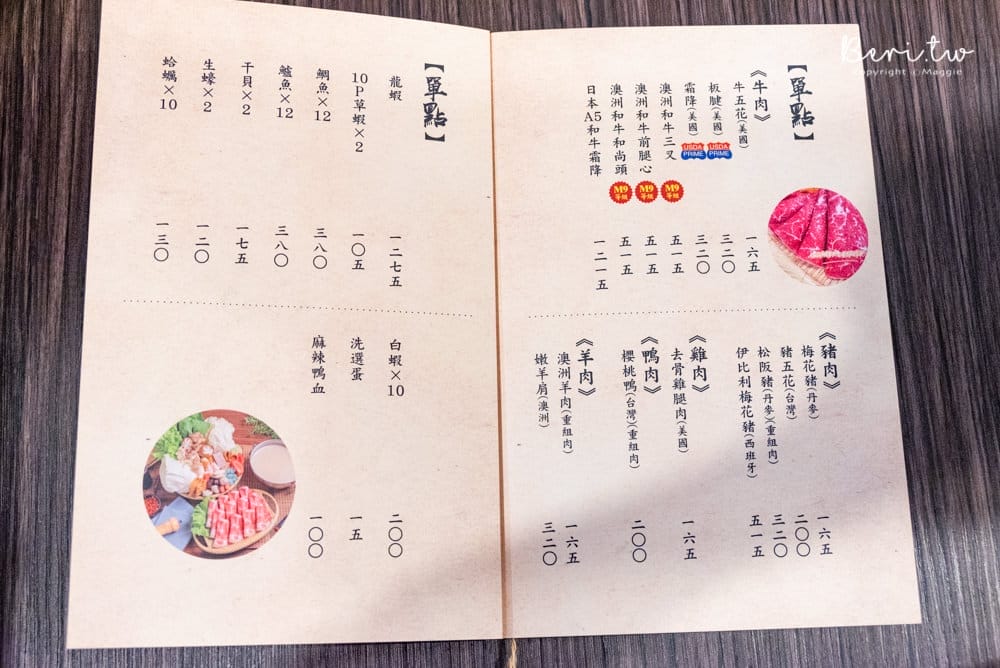 Beri.tw
Copyright © Maggie
【單點】
《牛肉》
牛五花(美國) 一六五
板腱(美國) USDA PRIME 三二〇
霜降(美國) USDA PRIME 三二〇
澳洲和牛三叉 M9等級 五一五
澳洲和牛前腿心 M9等級 五一五
澳洲和牛和尚頭 M9等級 五一五
日本A5和牛霜降 一二一五
《豬肉》
梅花豬(丹麥) 一六五
豬五花(台灣) 二〇〇
松阪豬(丹麥)(重組肉) 三二〇
伊比利梅花豬(西班牙) 五一五
《雞肉》
去骨雞腿肉(美國) 一六五
《鴨肉》
櫻桃鴨(台灣)(重組肉) 二〇〇
《羊肉》
澳洲羊肉(重組肉) 一六五
嫩羊肩(澳洲) 三二〇
【單點】
龍蝦 一二七五
10P草蝦×2 一〇五
鯛魚×12 三八〇
鱸魚×12 三八〇
干貝×2 一七五
生蠔×2 一二〇
蛤蠣×10 一三〇
白蝦×10 二〇〇
洗選蛋 一五
麻辣鴨血 一〇〇